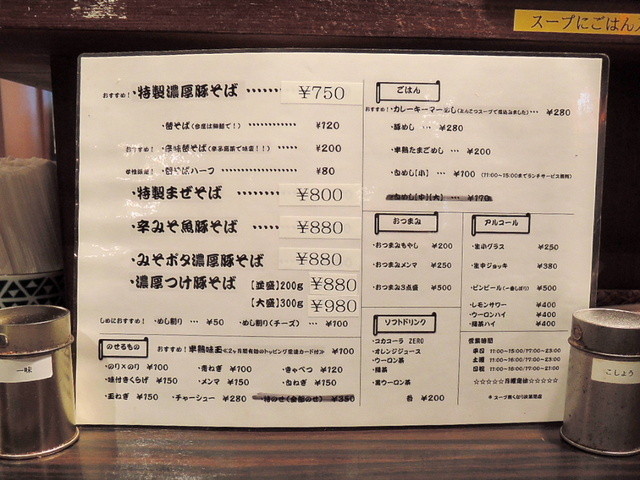 スープにごはん
おすすめ！・特製濃厚豚そば ‥‥‥ ¥750
・替そば(今度は細麺で！) ‥‥‥‥‥ ¥120
おすすめ！ ・味替そば ‥‥‥‥‥ ¥200
・替そばハーフ ‥‥‥‥‥ ¥80
・特製まぜそば ‥‥‥‥ ¥800
・辛みそ魚豚そば ‥‥‥ ¥880
・みそポタ濃厚豚そば ‥‥‥ ¥880
・濃厚つけ豚そば [並盛]200g ¥880
[大盛]300g ¥980
しめにおすすめ！ ・めし割り … ¥50 ・めし割り(チーズ) … ¥100
のせるもの
おすすめ！ 半熟味玉 ¥100
・のり×のり ¥100 ・青ねぎ ¥100 ・きゃべつ ¥120
・味付きくらげ ¥150 ・メンマ ¥150 ・白ねぎ ¥150
・玉ねぎ ¥150 ・チャーシュー ¥280 ・特のせ(全部のせ) ¥350
ごはん
おすすめ！・カレーキーマーめし(とんこつスープで煮込みました)… ¥280
・豚めし … ¥280
・半熟たまごめし … ¥200
・白めし【小】 … ¥100 (11:00〜15:00までランチサービス無料)
・白めし【中】【大】 … ¥170
おつまみ
・おつまみもやし ¥200
・おつまみメンマ ¥250
・おつまみ3点盛 ¥500
アルコール
・生小グラス ¥250
・生中ジョッキ ¥380
・ビンビール(一番しぼり) ¥500
・レモンサワー ¥400
・ウーロンハイ ¥400
・緑茶ハイ ¥400
ソフトドリンク
・コカコーラ ZERO
・オレンジジュース
・ウーロン茶
・緑茶
・黒ウーロン茶
各 ¥200
営業時間
平日 11:00~15:00/17:00~23:00
土曜 11:00~16:00/17:00~23:00
日祝 11:00~16:00/17:00~21:00
☆☆☆☆☆月曜定休☆☆☆☆☆
＊スープ無くなり次第閉店
一味
こしょう